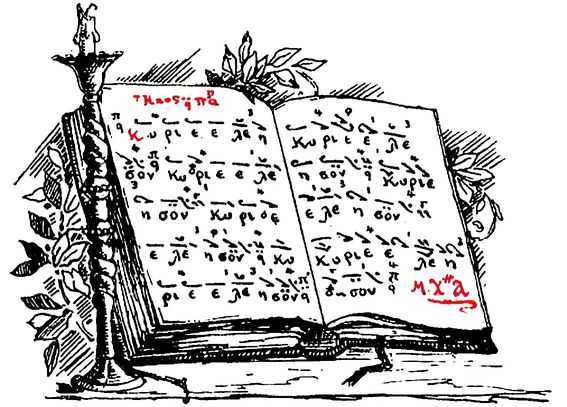 Κυ ρι ε ε λε η
σον Κυ ρι ε ε λε
η σον Κυ ρι ε
ε λε η σον Κυ
ρι ε ε λε η σον
Κυ ρι ε ε λε
η σον Κυ ρι ε
ε λε η σον
Κυ ρι ε ε λε η
σον